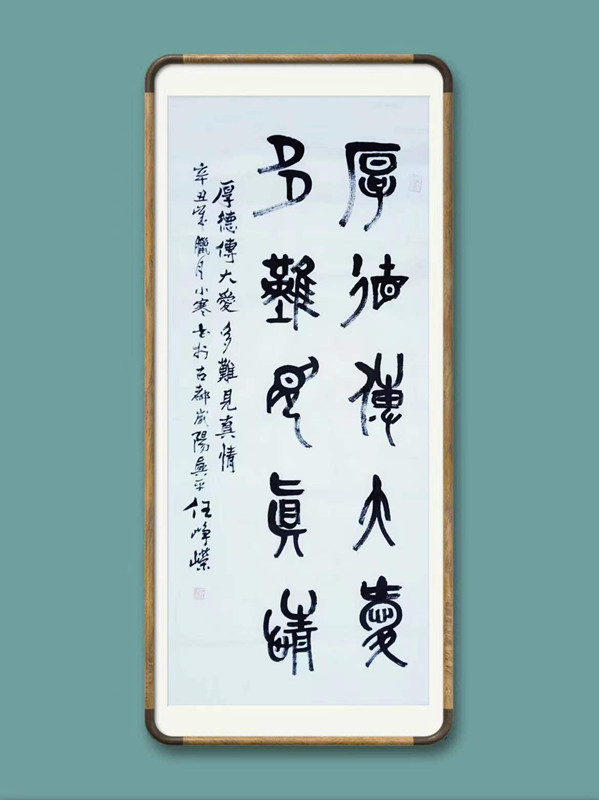 厚德傳大愛
多難見真情
厚德傳大愛多難見真情
辛丑歲臘月小寒書於古都咸陽興平任崢嶸